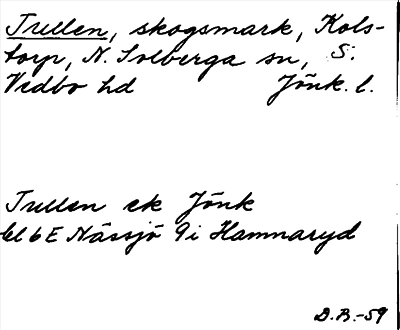 Trullen, skogsmark, Kols-
torp, N. Solberga sn, S:
Vedbo hd Jönk. l.
Trullen ek Jönk
bl 6E Nässjö 9i Hamnaryd
D.B.-59